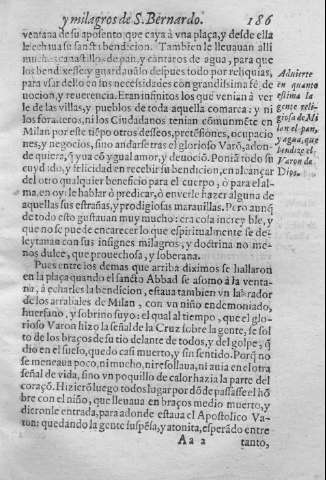 y milagros de S. Bernardo. 186
ventana de su aposento que caya à vna plaça, y desde ella
le echaua su sancta bendicion. Tambien le lleuauan alli
muchos canastillos de pan, y cantaros de agua, para que
los bendixesse; y guardauālo despues todo por reliquias,
para vsar dello en sus necessidades con grandissima fê, de
uocion, y reuerencia. Eran infinitos los que venian à ver
le de las villas, y pueblos de toda aquella comarca: y ni
los forasteros, ni los Ciudadanos tenian comunmēte en
Milan por este tiēpo otros desseos, pretēsiones, ocupacio
nes, y negocios, sino andarse tras el glorioso Varō, adon-
de quiera, q̃ yua cō ygual amor, y deuociō. Ponia todo su
cuydado, y felicidad en recebir su bendicion, en alcançar
del otro qualquier beneficio para el cuerpo, ò para el al-
ma, en oyrle hablar ò predicar, ò en verle hazer alguna de
aquellas sus estrañas, y prodigiosas marauillas. Pero aunq̃
de todo esto gustauan muy mucho: era cosa increyble, y
que no se puede encarecer lo que espiritualmente se de-
leytauan con sus insignes milagros, y doctrina no me-
nos dulce, que prouechosa, y soberana.
Pues entre los demas que arriba diximos se hallaron
en la plaça quando el sancto Abbad se asomò à la venta-
na, à echarles la bendicion, estaua tambien vn labrador
de los arrabales de Milan, con vn niño endemoniado,
huerfano, y sobrino suyo: el qual al tiempo, que el glo-
rioso Varon hizo la señal de la Cruz sobre la gente, se sol
to de los braços de su tio delante de todos, y del golpe, q̃
dio en el suelo, quedo casi muerto, y sin sentido. Porq̃ no
se meneaua poco, ni mucho, ni resollaua, ni auia en el otra
señal de vida, sino vn poquillo de calor hazia la parte del
coraçō. Hizierō luego todos lugar por dōde passasse el hō
bre con el niño, que lleuaua en braços medio muerto, y
dieronle entrada, para adonde estaua el Apostolico Va-
ron: quedando la gente suspēsa, y atonita, esperādo entre
Aa 2 tanto,
Aduierte
en quanto
estima la
gente reli-
giosa de Mi
lan el pan,
y agua, que
bendize el
Varon de
Dios.